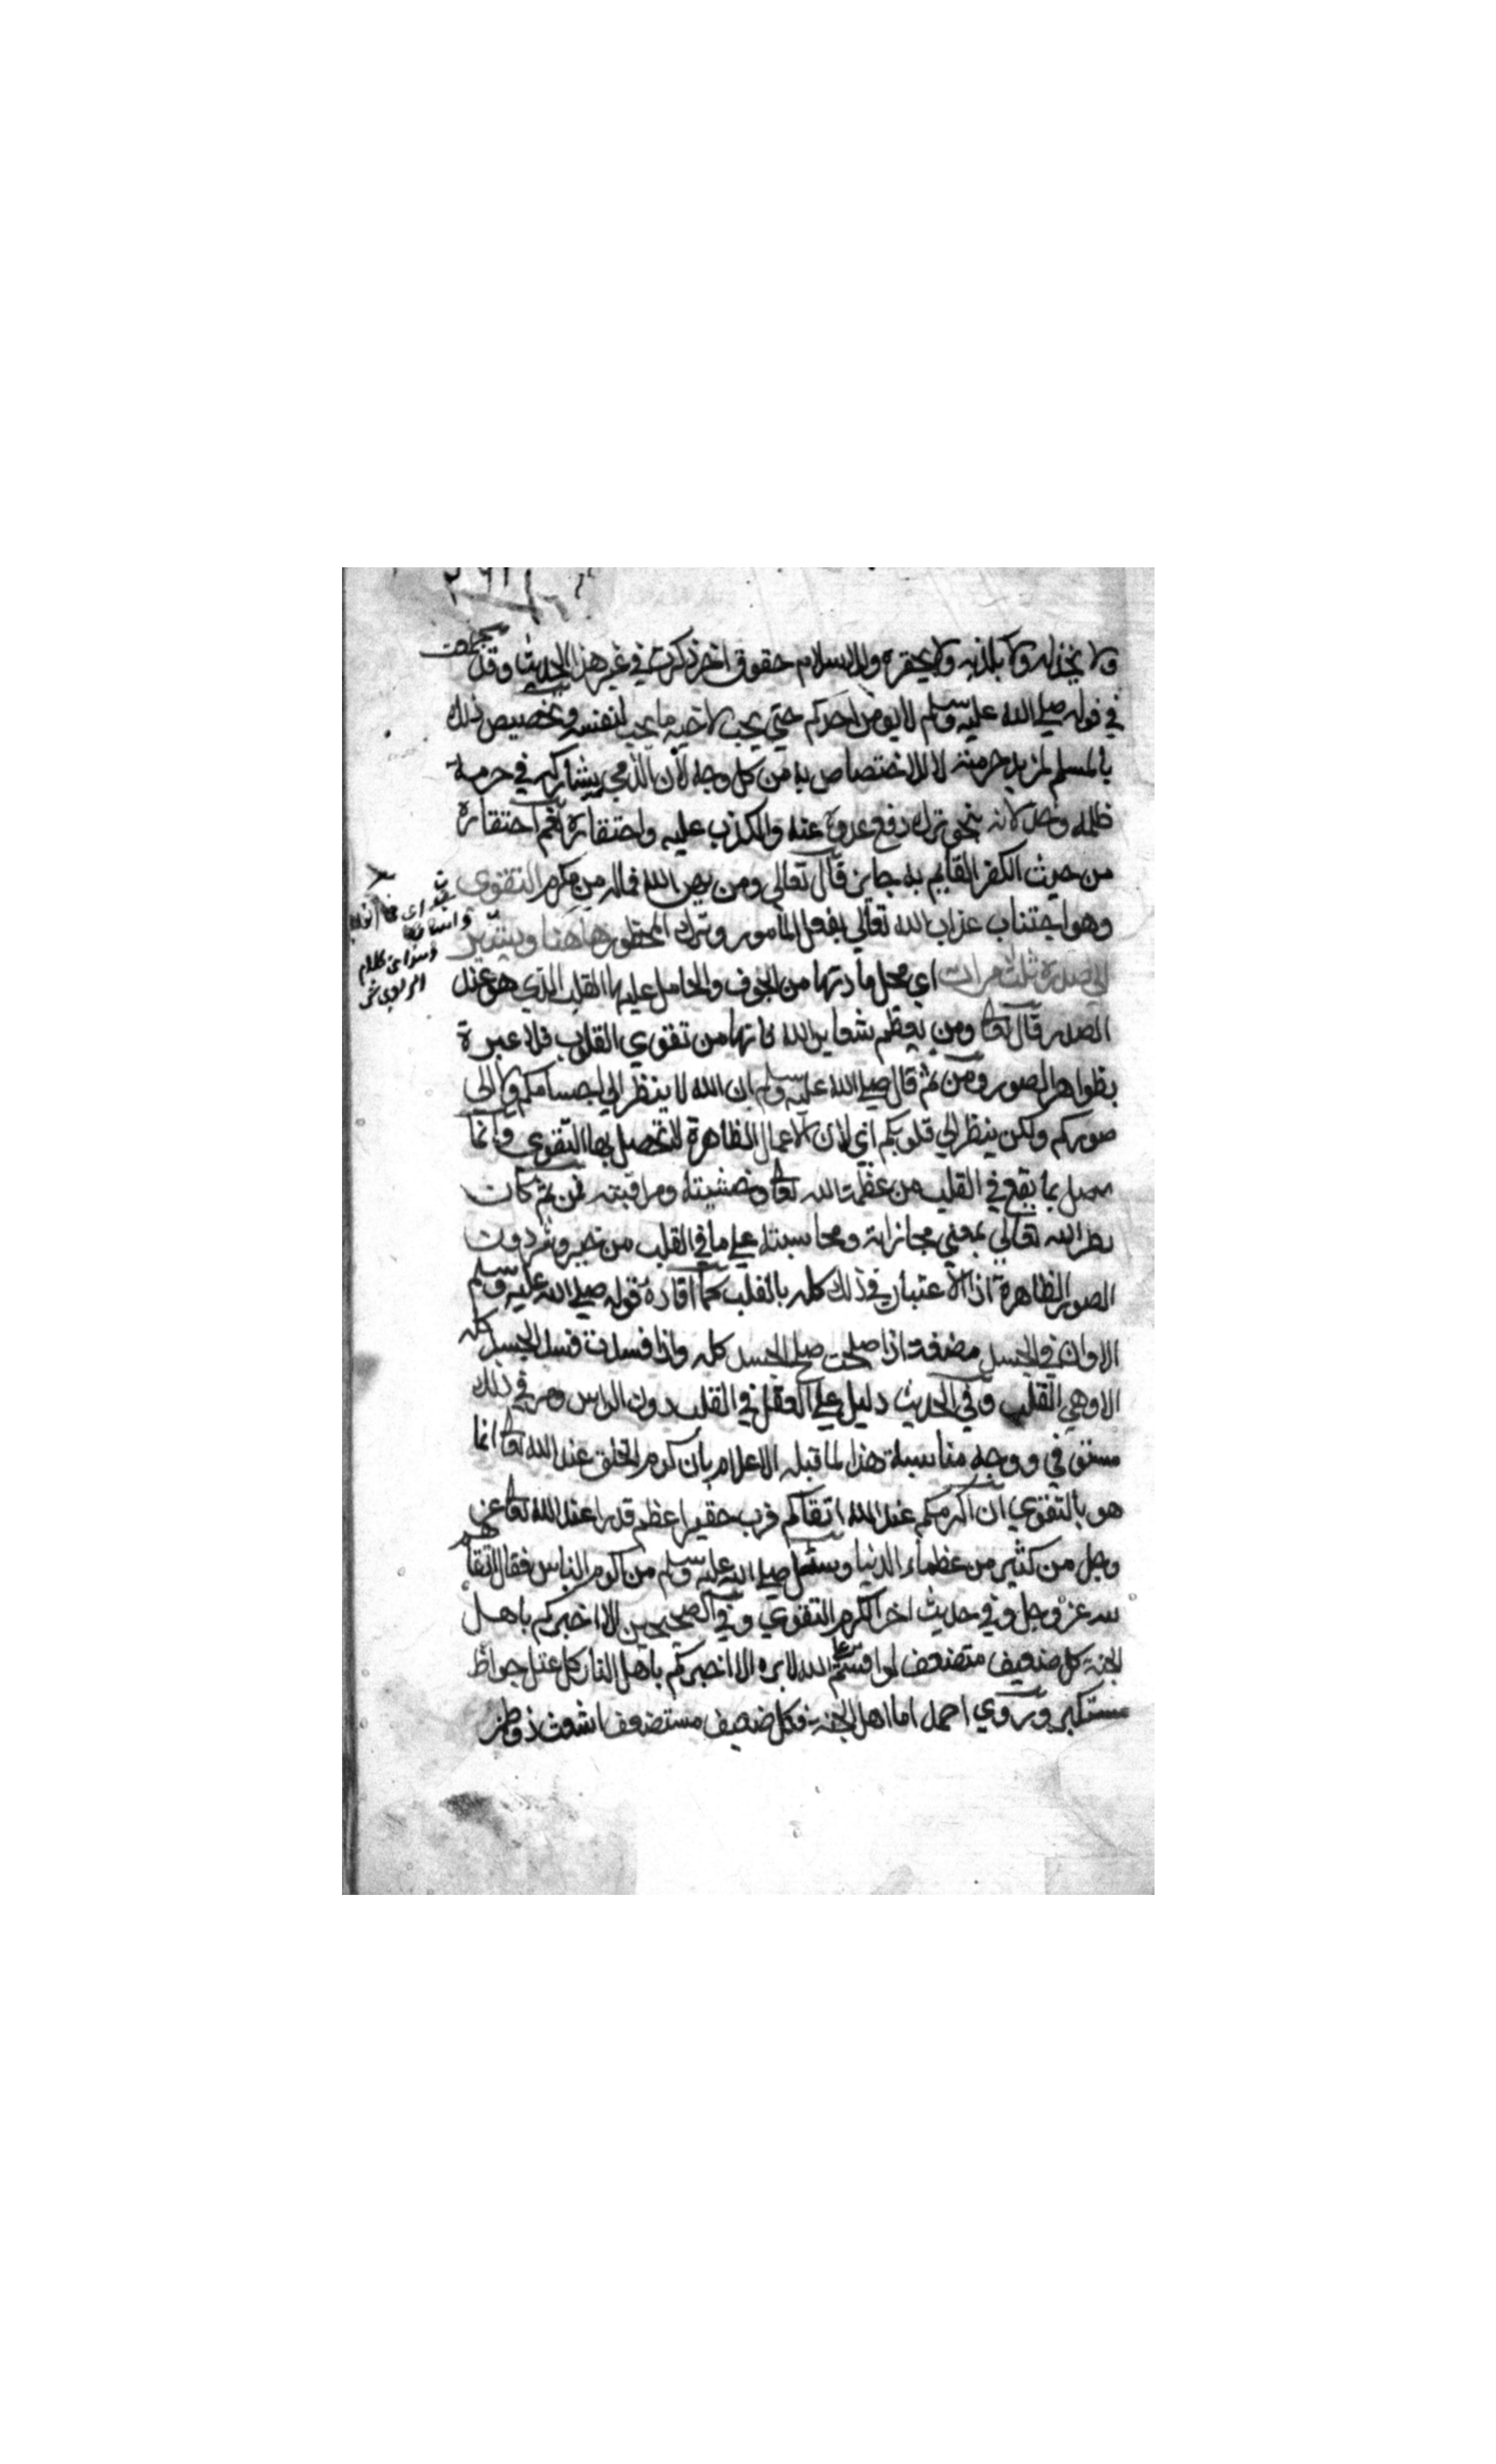 ولا يخذله ولا يكذبه ولا يحقره وللاسلام حقوق اخر ذكرت في غير هذا الحديث وقد جمعت
في قوله صلى الله عليه وسلم لا يومن احدكم حتى يحب لاخيه ما يحب لنفسه وتخصيص ذلك
بالمسلم لمزيد حرمته لا للاختصاص به من كل وجه لان الذمي يشاركه في حرمة
ظلمه وخذلانه بنحو ترك دفع عدوه عنه والكذب عليه واحتقاره نعم احتقاره
من حيث الكفر القايم به جايز قال تعالى ومن يهن الله فما له من مكرم التقوى
وهو اجتناب عذاب الله تعالى بفعل المامور وترك المحظور هاهنا ويشير
الى صدره ثلاث مرات اي محل مادتها من الخوف والحامل عليها القلب الذي هو عند
الصدر قال تعالى ومن يعظم شعاير الله فانها من تقوي القلوب فلا عبرة
بظواهر الصور ومن ثم قال صلى الله عليه وسلم ان الله لا ينظر الى اجسامكم ولا الى
صوركم ولكن ينظر الى قلوبكم اي لان الاعمال الظاهرة لا تحصل بها التقوي وانما
تحصل بما يقع في القلب من عظمة الله تعالى وخشيته ومراقبته فمن ثم كانت
نظر الله تعالى بمعني مجازاته ومحاسبته على ما في القلب من خير وشر دون
الصور الظاهرة اذ الاعتبار في ذلك كله بالقلب كما افاده قوله صلى الله عليه وسلم
الا وان في الجسد مضغة اذا صلحت صلح الجسد كله واذا فسدت فسد الجسد كله
الا وهي القلب وفي الحديث دليل على العقل في القلب دون الراس ومر في ذلك
مستوفي ووجه مناسبة هذا لما قبله الاعلام بان كرم الخلق عند الله تعالى انما
هو بالتقوي ان اكرمكم عند الله اتقاكم فرب حقير اعظم قدرا عند الله تعالى عز
وجل من كثير من عظماء الدنيا وسئل صلى الله عليه وسلم من اكرم الناس فقال اتقاهم
لله عز وجل وفي حديث اخر الكرم التقوي وفي الصحيحين الا اخبركم باهل
الجنة كل ضعيف متضعف لو اقسم على الله لابره الا اخبركم باهل النار كل عتل جواظ
مستكبر وروي احمد اما اهل الجنة فكل ضعيف مستضعف اشعث ذو طمر